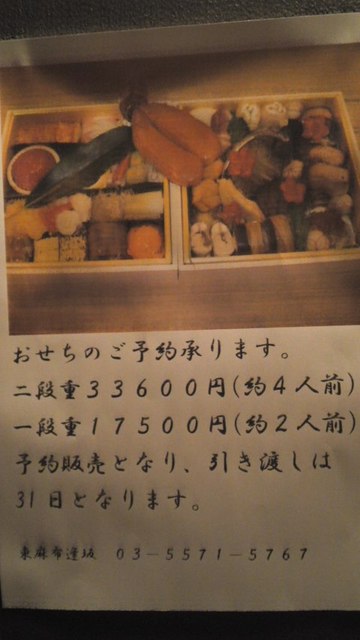 おせちのご予約承ります。
二段重３３６００円(約４人前)
一段重１７５００円(約２人前)
予約販売となり、引き渡しは
31日となります。
東麻布逢坂 ０３－５５７１－５７６７